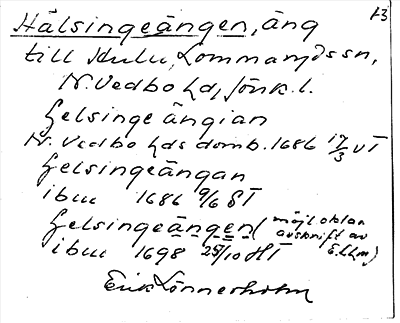 13
Hälsingeängen, äng
till Hulu, Lommaryds sn,
N. Vedbo hd, Jönk. l.
helsinge ängian
N. Vedbo hds domb. 1686 17/3 vT
helsingeängan
ibm 1686 9/6 ST
helsingeängen (möjl oklar
avskrift av
E. Lhm)
ibm 1698 25/10 HT
Erik Lönnerholm